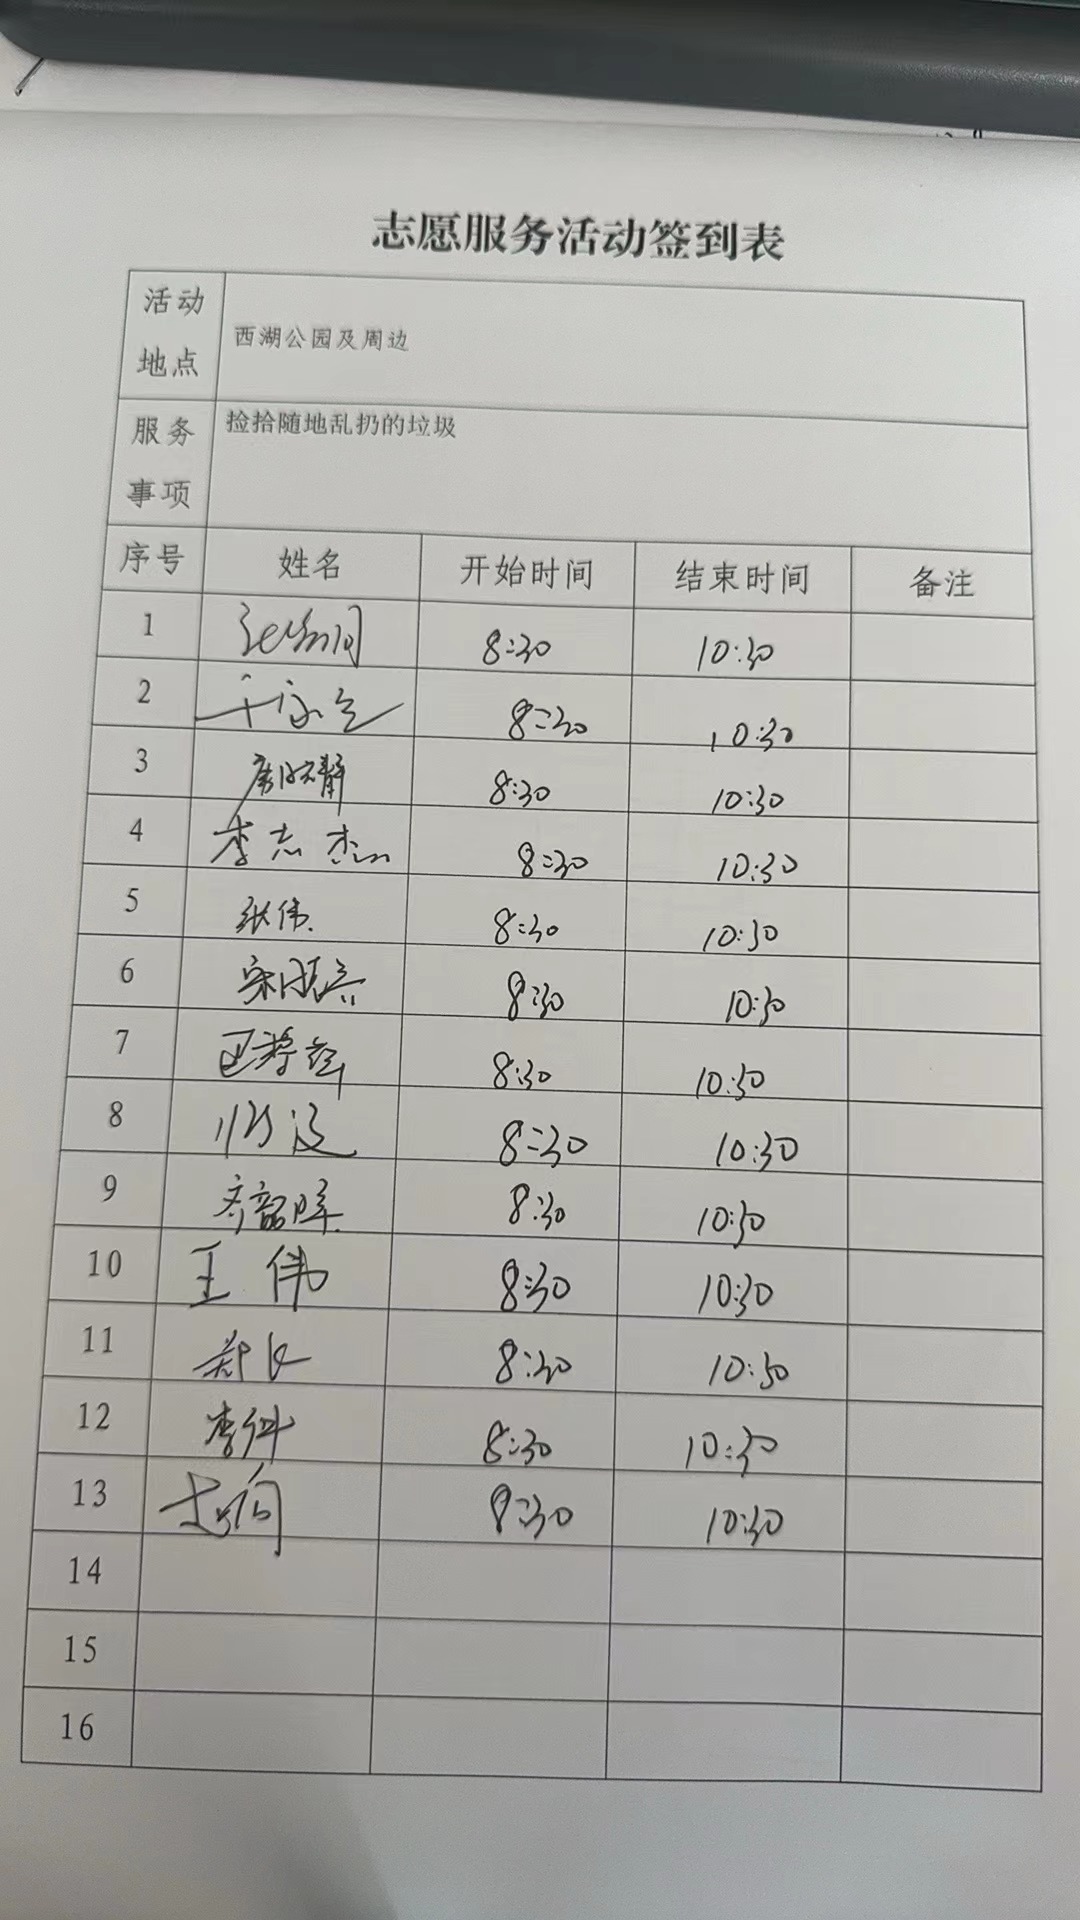 志愿服务活动签到表
活动地点 西湖公园及周边
服务事项 捡拾随地乱扔的垃圾
序号 姓名 开始时间 结束时间 备注
1 8:30 10:30
2 8:30 10:30
3 8:30 10:30
4 李志杰 8:30 10:30
5 张伟 8:30 10:30
6 8:30 10:30
7 8:30 10:30
8 8:30 10:30
9 8:30 10:30
10 王伟 8:30 10:30
11 8:30 10:30
12 8:30 10:30
13 8:30 10:30
14
15
16